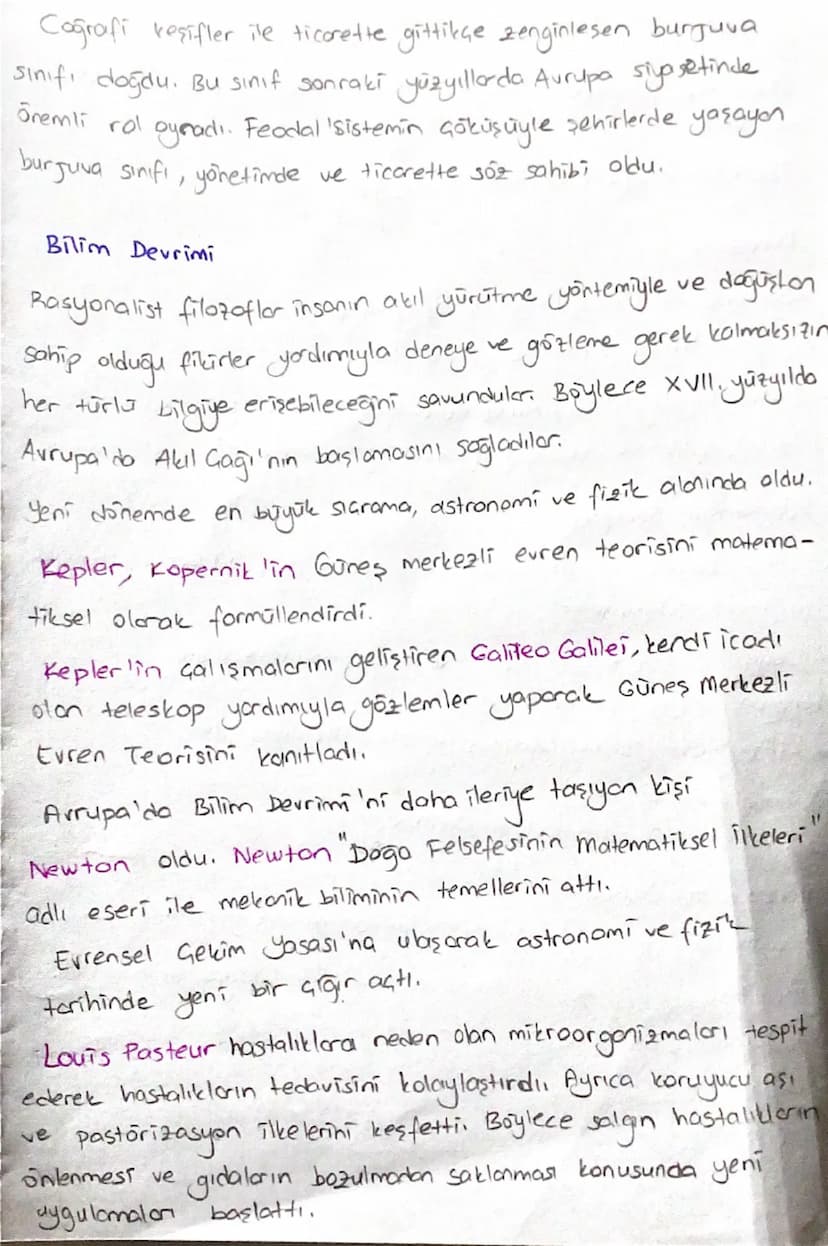 Coğrafi keşifler ile ticarette gittikçe zenginleşen burjuva
sınıfı doğdu. Bu sınıf sonraki yüzyıllarda Avrupa siyasetinde
önemli rol oynadı. Feodal sistemin çöküşüyle şehirlerde yaşayan
burjuva sınıfı, yönetimde ve ticarette söz sahibi oldu.
Bilim Devrimi
Rasyonalist filozoflar insanın akıl yürütme yöntemiyle ve doğuştan
sahip olduğu fikirler yardımıyla deneye ve gözleme gerek kalmaksızın
her türlü bilgiye erişebileceğini savundular. Böylece XVII. yüzyılda
Avrupa'da Akıl Çağı'nın başlamasını sağladılar.
Yeni dönemde en büyük sıcrama, astronomi ve fizik alanında oldu.
Kepler, Kopernik'in Güneş merkezli evren teorisini matema-
tiksel olarak formüllendirdi.
Kepler'in çalışmalarını geliştiren Galileo Galilei, kendi icadı
olan teleskop yardımıyla gözlemler yaparak Güneş Merkezli
Evren Teorisini kanıtladı.
Avrupa'da Bilim Devrimi'ni daha ileriye taşıyan kişi
Newton oldu. Newton "Doğa Felsefesinin Matematiksel İlkeleri"
adlı eseri ile mekanik biliminin temellerini attı.
Evrensel Çekim Yasası'na ulaşarak astronomi ve fizik
tarihinde yeni bir çığır açtı.
Louis Pasteur hastalıklara neden olan mikroorganizmaları tespit
ederek hastalıkların tedavisini kolaylaştırdı. Ayrıca koruyucu aşı
ve pastörizasyon ilkelerini keşfetti. Böylece salgın hastalıkların
önlenmesi ve gıdaların bozulmadan saklanması konusunda yeni
uygulamaları başlattı.